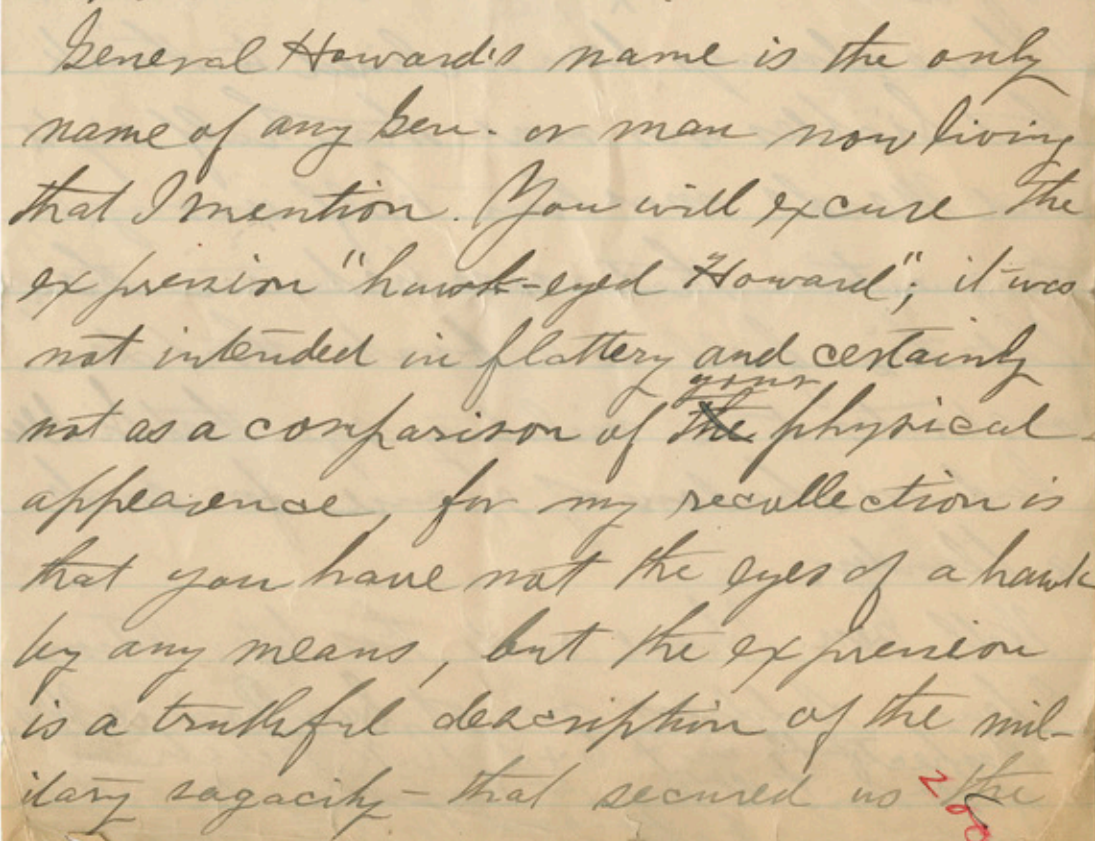 General Howard's name is the only
name of any Gen. or man now living
that I mention. You will excuse the
expression "hawk-eyed Howard"; it was
not intended in flattery and certainly
your
not as a comparison of the physical
appearence, for my recollection is
that you have not the eyes of a hawk
by any means, but the expression
is a truthful description of the mil-
itary sagacity - that secured us the